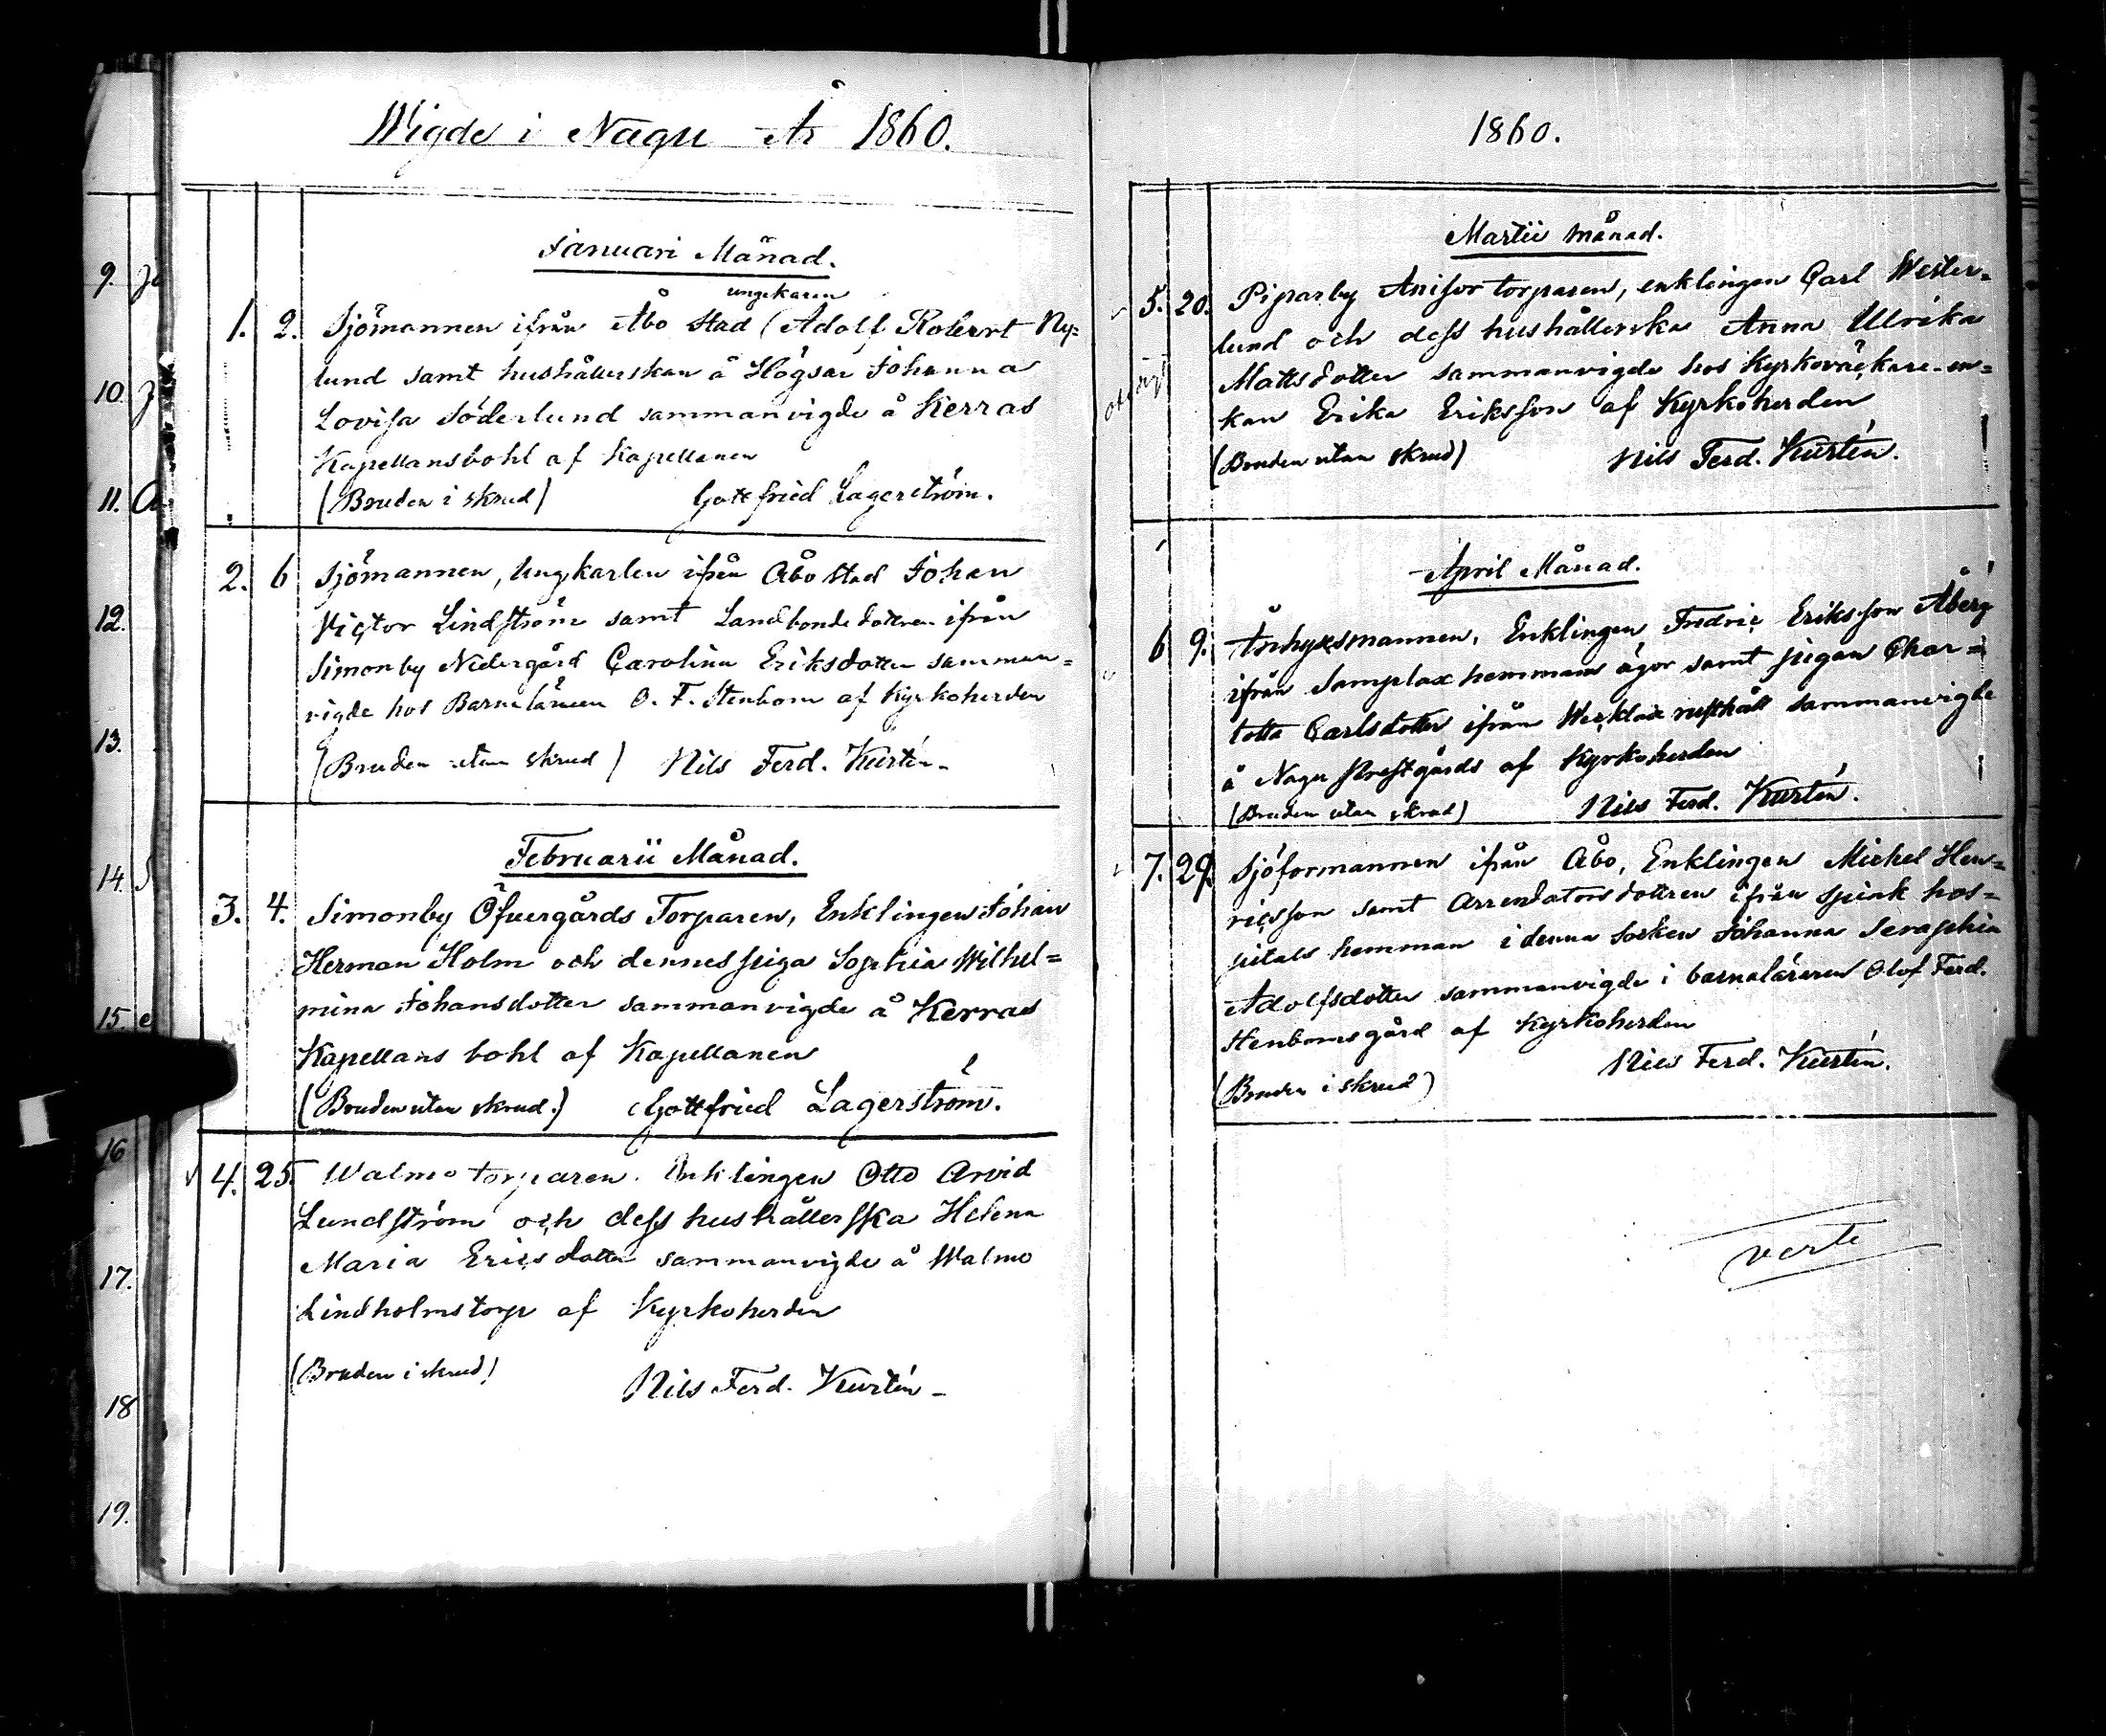 Wigde i Nagu År 1860.
Januari Månad.
ungkaren
1. 2. Sjömannen ifrån Åbo Stad (Adolf Robert Ny=
lund samt hushållerskan å Högsar Johanna
Lovisa Söderlund sammanvigde å Kerras
Kapellansbohl af Kapellanen
(Bruden i skrud) Gottfried Lagerström.
2. 6 Sjömannen, Ungkarlen ifrån Åbo stad Johan
Victor Lindström samt Landbonde dottren ifrån
Simonby Nedergård Carolina Eriksdotter samman=
vigde hos Barnaläraren O. F. Stenbom af Kyrkoherden
(Bruden utan skrud) Nils Ferd. Kurtén.
Februarii Månad.
3. 4. Simonby Öfvergårds Torparen, Enklingen Johan
Herman Holm och dennes piga Sophia Wilhel=
mina Johansdotter sammanvigde å Kerras
Kapellans bohl af Kapellanen
(Bruden utan skrud.) Gottfried Lagerström.
4. 25 Walmo torparen. Enklingen Otto Arvid
Lundström och dess hushållerska Helena
Maria Ericsdotter sammanvigde å Walmo
Lindholmstorp af Kyrkoherden
(Bruden i skrud) Nils Ferd. Kurtén
1860.
Martii månad.
5. 20. Piparby Anisor torparen, enklingen Carl Wester=
lund och dess hushållerska Anna Ulrika
Mattsdotter sammanvigde hos Kyrkoväckare-en=
kan Erika Eriksson af Kyrkoherden
(Bruden utan skrud) Nils Ferd. Kurtén.
April Månad.
6 9. Enklingen Fredric Eriksson Åberg
ifrån Samplax hemmans ägor samt pigan Char=
lotta Carlsdotter ifrån rusthåll sammanvigde
å Nagu Prestgårds af Kyrkoherden
(Bruden utan skrud) Nils Ferd. Kurtén.
7. 29. Sjöformannen ifrån Åbo, Enklingen Michel Hen=
ricsson samt Arrendators dottren ifrån Spink hos=
pitals hemman i denna Socken Johanna Seraphia
Adolfsdotter sammanvigde i barnaläraren Olof Ferd.
Stenboms gård af Kyrkoherden
(Bruden i skrud) Nils Ferd. Kurtén.
verte
9.
10.
11.
12.
13.
14.
15.
16
17.
18
19.